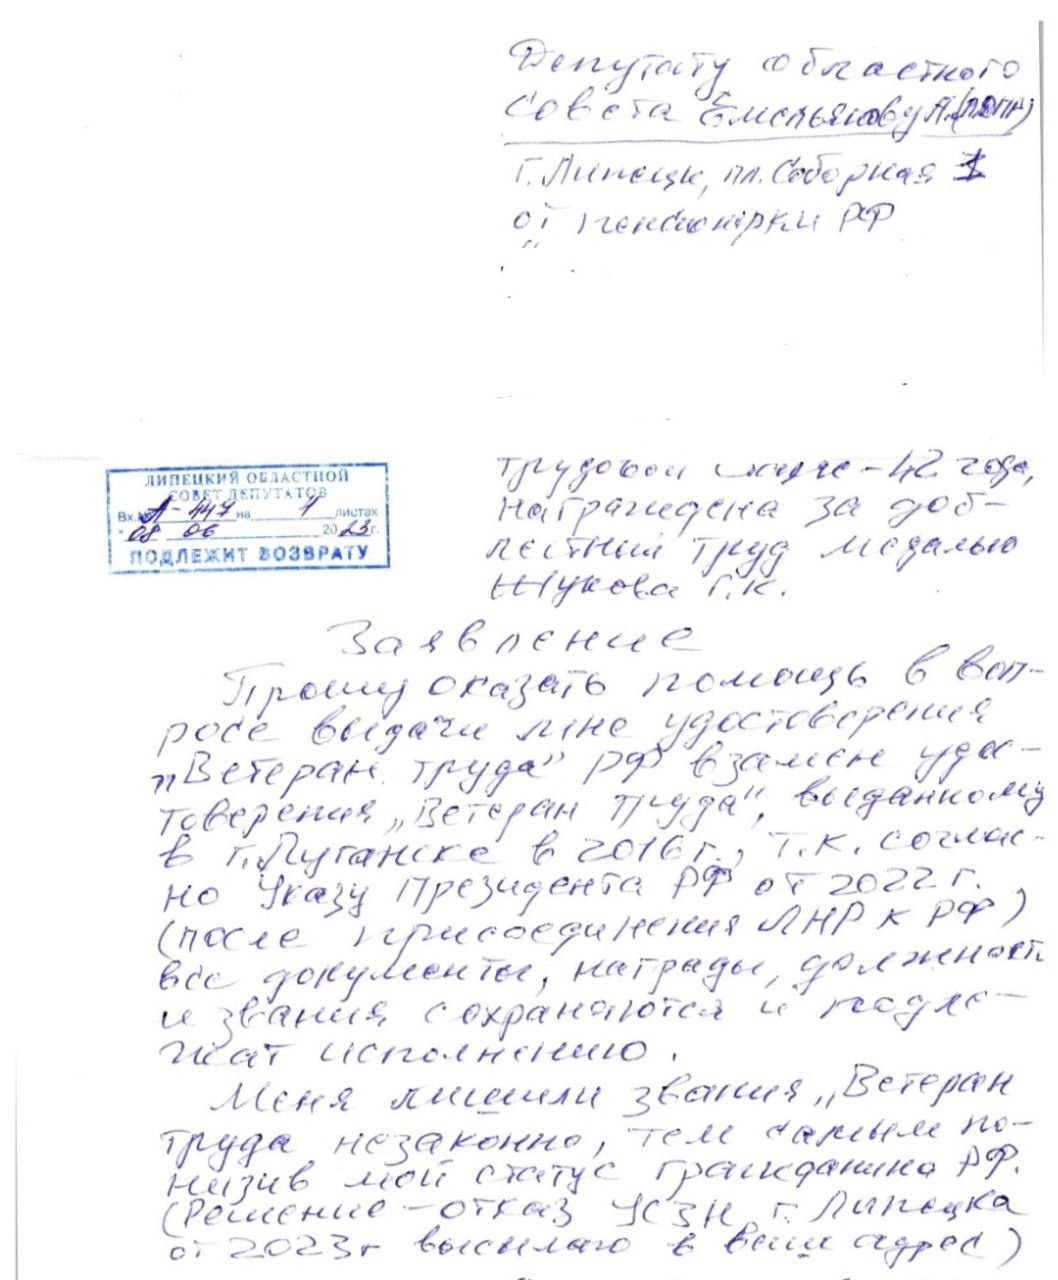 Депутату областного
Совета Емельянову А. (ЛДПР)
г. Липецк, пл. Соборная 1
от пенсионерки РФ
трудовой стаж - 42 года,
награждена за доб-
лестный труд медалью
Жукова Г.К.
ЛИПЕЦКИЙ ОБЛАСТНОЙ
СОВЕТ ДЕПУТАТОВ
Вх.№ А-447 на 1 листах
"08 06 2023г.
ПОДЛЕЖИТ ВОЗВРАТУ
Заявление
Прошу оказать помощь в воп-
росе выдачи мне удостоверения
„Ветеран труда" РФ взамен удос-
товерения „Ветеран труда", выданному
в г. Луганске в 2016 г., т.к. соглас-
но Указу Президента РФ от 2022 г.
(после присоединения ЛНР к РФ)
все документы, награды, должности
и звания сохраняются и подле-
жат исполнению.
Меня лишили звания „Ветеран
труда незаконно, тем самым по-
низив мой статус гражданина РФ.
(Решение - отказ УСЗН г. Липецка
от 2023г высылаю в ваш адрес)